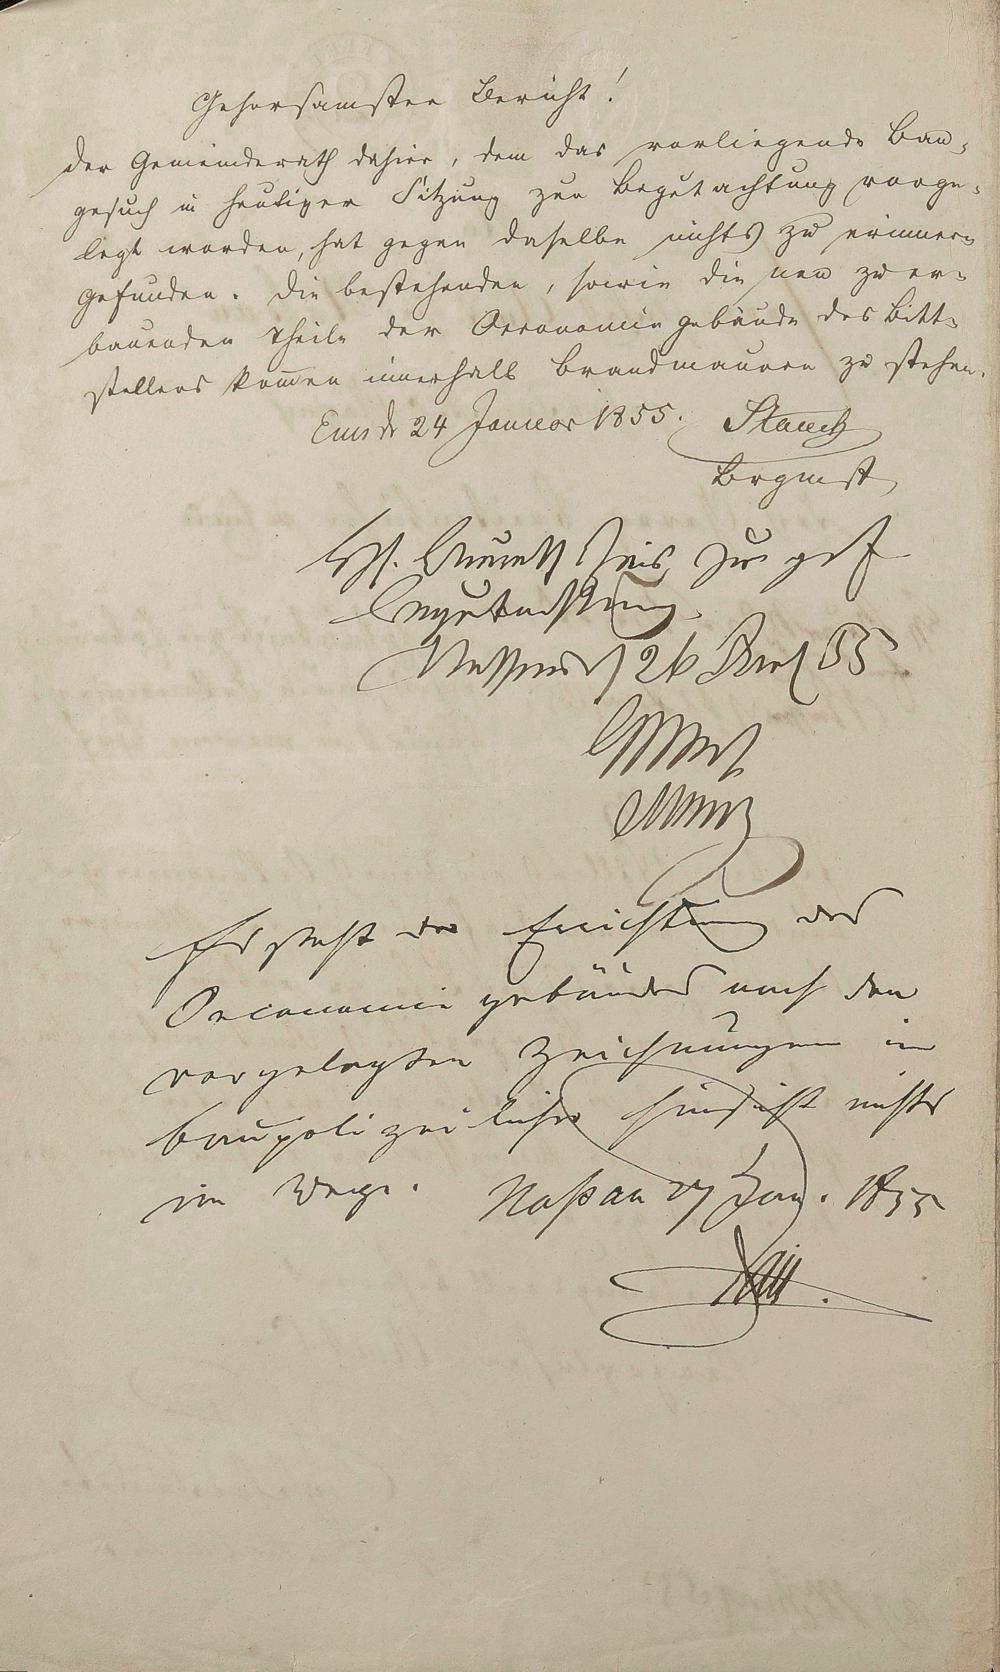 Gehorsamster Bericht!
Der Gemeinderath dahier, dem das vorliegende Bau-
gesuch in heutiger Sitzung zur Begutachtung vorge-
legt worden, hat gegen daselbe nichts zu erinnern
gefunden. Die bestehenden, sowie die neu zu er-
bauenden Theile der Oeconomiegebäude des Bitt-
stellers kommen innerhalb Brandmauern zu stehen.
Ems d 24 Januar 1855. Stauch
Brgmst
zur gef
Begutachtung.
Nassau 26 55
Es steht der Errichtung des
Oeconomie gebäudes nach den
vorgelegten Zeichnungen in
baupolizeilicher Hinsicht nichts
im Wege. Naßau 27 Jan. 1855